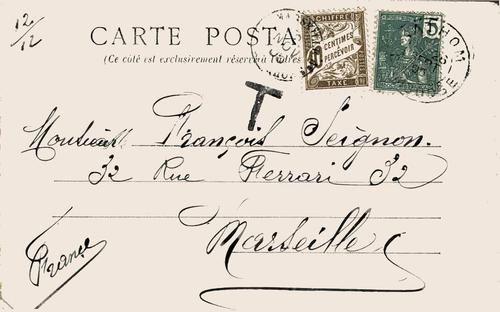 12/12
CARTE POSTA
(Ce côté est exclusivement réservé à l'adres
CHIFFRE
CENTIMES
À PERCEVOIR
TAXE
5
T
Monsieur François Seignon.
32 Rue Ferrari 32
Marseille
France